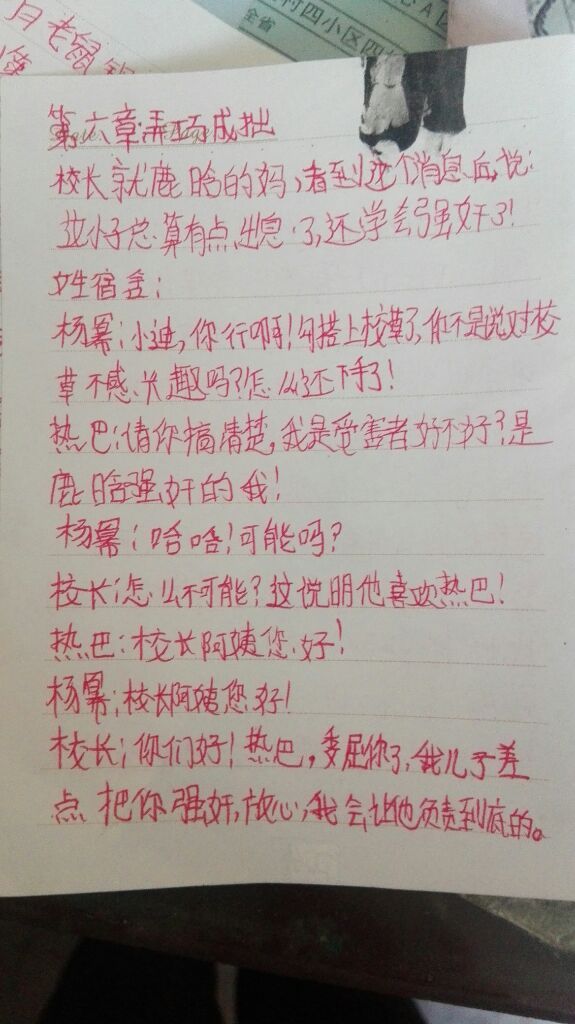 月老鼠
第
村四小区四
全省
A
第六章弄巧成拙
校长就鹿晗的妈,看到这个消息后,说:
这小子总算有点出息了,还学会强奸了!
女生宿舍:
杨幂:小迪,你行啊!勾搭上校草了,你不是说对校
草不感兴趣吗?怎么还下手了!
热巴:请你搞清楚,我是受害者好不好?是
鹿晗强奸的我!
杨幂:哈哈!可能吗?
校长:怎么不可能?这说明他喜欢热巴!
热巴:校长阿姨您好!
杨幂:校长阿姨您好!
校长:你们好!热巴,委屈你了,我儿子差
点把你强奸,放心,我会让他负责到底的。